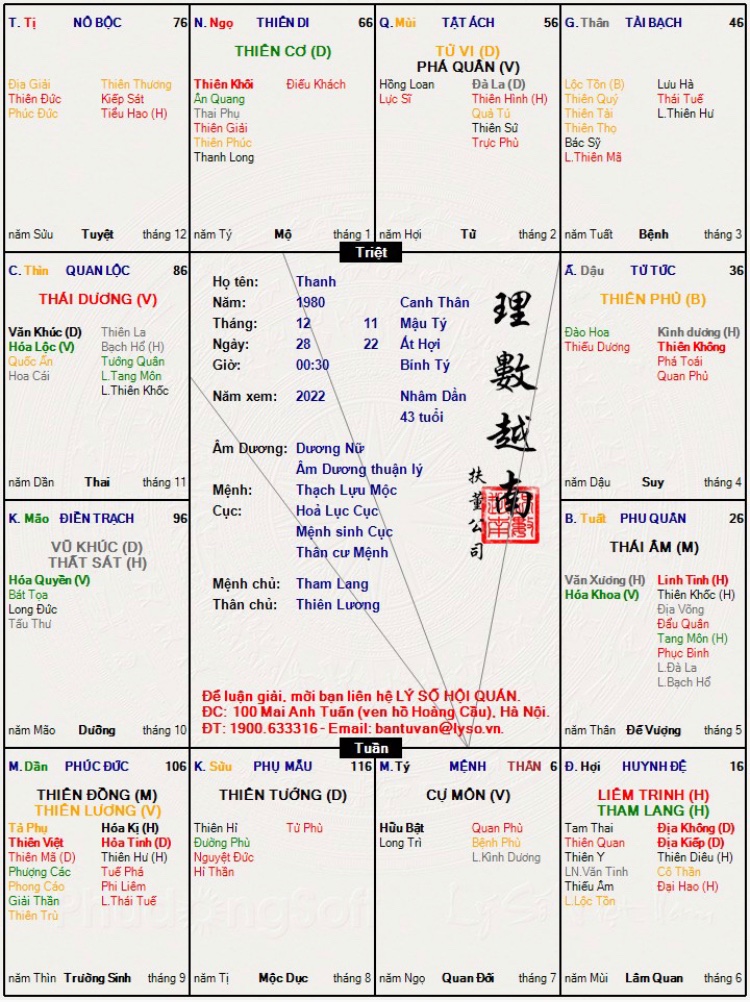 T. Tị NÔ BỘC 76
Địa Giải Thiên Thương
Thiên Đức Kiếp Sát
Phúc Đức Tiểu Hao (H)
năm Sửu Tuyệt tháng 12
N. Ngọ THIÊN DI 66
THIÊN CƠ (D)
Thiên Khôi Điếu Khách
Ân Quang
Thai Phụ
Thiên Giải
Thiên Phúc
Thanh Long
năm Tý Mộ tháng 1
Q. Mùi TẬT ÁCH 56
TỬ VI (D)
PHÁ QUÂN (V)
Hồng Loan Đà La (D)
Lực Sĩ Thiên Hình (H)
Quả Tú
Thiên Sứ
Trực Phủ
năm Hợi Tử tháng 2
G. Thân TÀI BẠCH 46
Lộc Tồn (B) Lưu Hà
Thiên Quý Thái Tuế
Thiên Tài L.Thiên Hư
Thiên Thọ
Bác Sỹ
L.Thiên Mã
năm Tuất Bệnh tháng 3
Triệt
C. Thìn QUAN LỘC 86
THÁI DƯƠNG (V)
Văn Khúc (D) Thiên La
Hóa Lộc (V) Bạch Hổ (H)
Quốc Ấn Tướng Quân
Hoa Cái L.Tang Môn
L.Thiên Khốc
năm Dần Thai tháng 11
Họ tên: Thanh
Năm: 1980 Canh Thân
Tháng: 12 11 Mậu Tý
Ngày: 28 22 Ất Hợi
Giờ: 00:30 Bính Tý
Năm xem: 2022 Nhâm Dần
43 tuổi
Âm Dương: Dương Nữ
Âm Dương thuận lý
Mệnh: Thạch Lựu Mộc
Cục: Hoả Lục Cục
Mệnh sinh Cục
Thân cư Mệnh
Mệnh chủ: Tham Lang
Thân chủ: Thiên Lương
理數越南
扶董公司
Để luận giải, mời bạn liên hệ LÝ SỐ HỘI QUÁN.
ĐC: 100 Mai Anh Tuấn (ven hồ Hoàng Cầu), Hà Nội.
ĐT: 1900.633316 - Email: bantuvan@lyso.vn.
Ấ. Dậu TỬ TỨC 36
THIÊN PHỦ (B)
Đào Hoa Kình dương (H)
Thiếu Dương Thiên Không
Phá Toái
Quan Phủ
năm Dậu Suy tháng 4
K. Mão ĐIỀN TRẠCH 96
VŨ KHÚC (D)
THẤT SÁT (H)
Hóa Quyền (V)
Bát Tọa
Long Đức
Tấu Thư
năm Mão Dưỡng tháng 10
B. Tuất PHU QUÂN 26
THÁI ÂM (M)
Văn Xương (H) Linh Tinh (H)
Hóa Khoa (V) Thiên Khốc (H)
Địa Võng
Đẩu Quân
Tang Môn (H)
Phục Binh
L.Đà La
L.Bạch Hổ
năm Thân Đế Vượng tháng 5
Tuần
M. Dần PHÚC ĐỨC 106
THIÊN ĐỒNG (M)
THIÊN LƯƠNG (V)
Tả Phụ Hóa Kị (H)
Thiên Việt Hỏa Tinh (D)
Thiên Mã (D) Thiên Hư (H)
Phượng Các Tuế Phá
Phong Cáo Phi Liêm
Giải Thần L.Thái Tuế
Thiên Trù
năm Thìn Trường Sinh tháng 9
K. Sửu PHỤ MẪU 116
THIÊN TƯỚNG (D)
Thiên Hỉ Tử Phù
Đường Phù
Nguyệt Đức
Hỉ Thần
năm Tị Mộc Dục tháng 8
M. Tý MỆNH THÂN 6
CỰ MÔN (V)
Hữu Bật Quan Phù
Long Trì Bệnh Phù
L.Kình Dương
năm Ngọ Quan Đới tháng 7
Đ. Hợi HUYNH ĐỆ 16
LIÊM TRINH (H)
THAM LANG (H)
Tam Thai Địa Không (D)
Thiên Quan Địa Kiếp (D)
Thiên Y Thiên Diêu (H)
LN.Văn Tinh Cô Thần
Thiếu Âm Đại Hao (H)
L.Lộc Tồn
năm Mùi Lâm Quan tháng 6